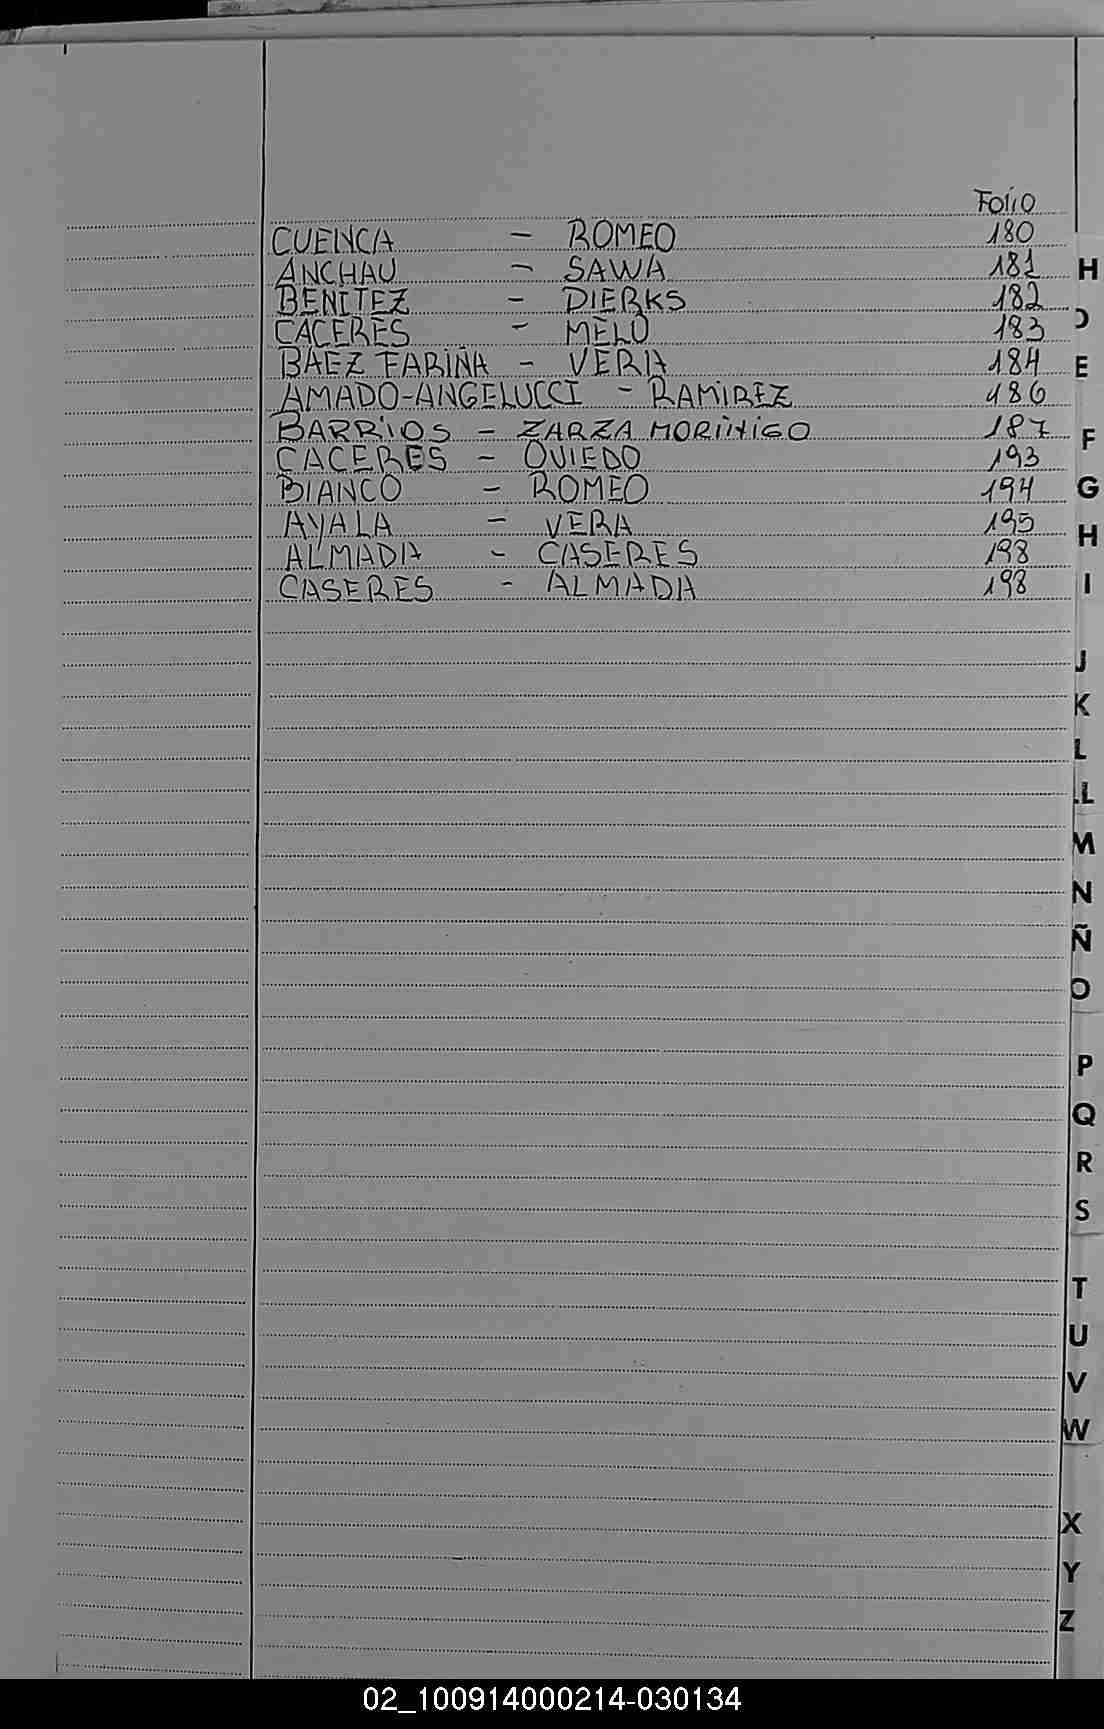 Folio
CUENCA - ROMEO 180
ANCHAU - SAWA 181
BENITEZ - DIERKS 182
CACERES - MELO 183
BAEZ FARIÑA - VERA 184
AMADO-ANGELUCCI - RAMIREZ 186
BARRIOS - ZARZA MORIÑIGO 187
CACERES - OVIEDO 193
BIANCO - ROMEO 194
AYALA - VERA 195
ALMADA - CASERES 198
CASERES - ALMADA 198
H
E
F
G
H
I
J
K
L
LL
M
N
Ñ
O
P
Q
R
S
T
U
V
W
X
Y
Z
02_100914000214-030134